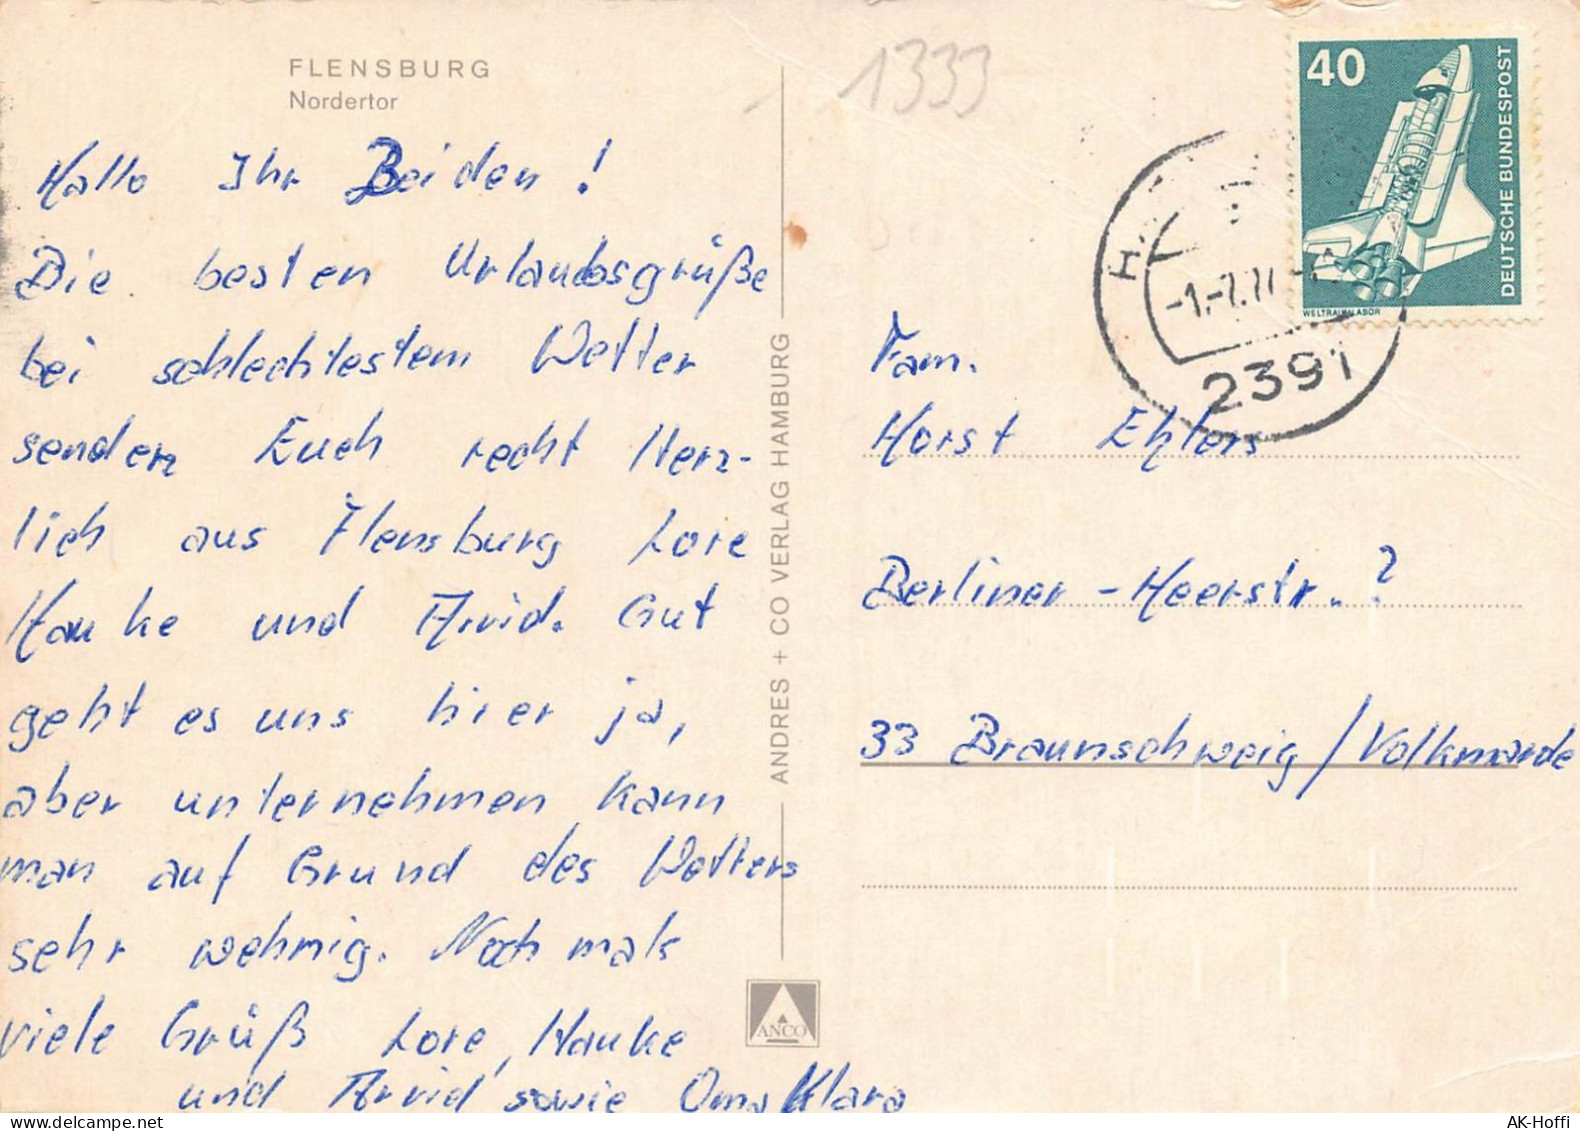 FLENSBURG
Nordertor
1333
40
DEUTSCHE BUNDESPOST
WELTRAUMLABOR
2391
Hallo Ihr Beiden!
Die besten Urlaubsgrüße
bei schlechtestem Wetter
senden Euch recht Herz-
lich aus Flensburg Lore
Hauke und Arvid. Gut
geht es uns hier ja,
aber unternehmen kann
man auf Grund des Wetters
sehr wehnig. Noch mals
viele Grüß Lore, Hauke
und Arvid sowie Oma Klara
ANDRES + CO VERLAG HAMBURG
ANCO
Fam.
Horst Ehlers
Berliner-Heerstr.?
33 Braunschweig/Volkmarde
AK-Hoffi